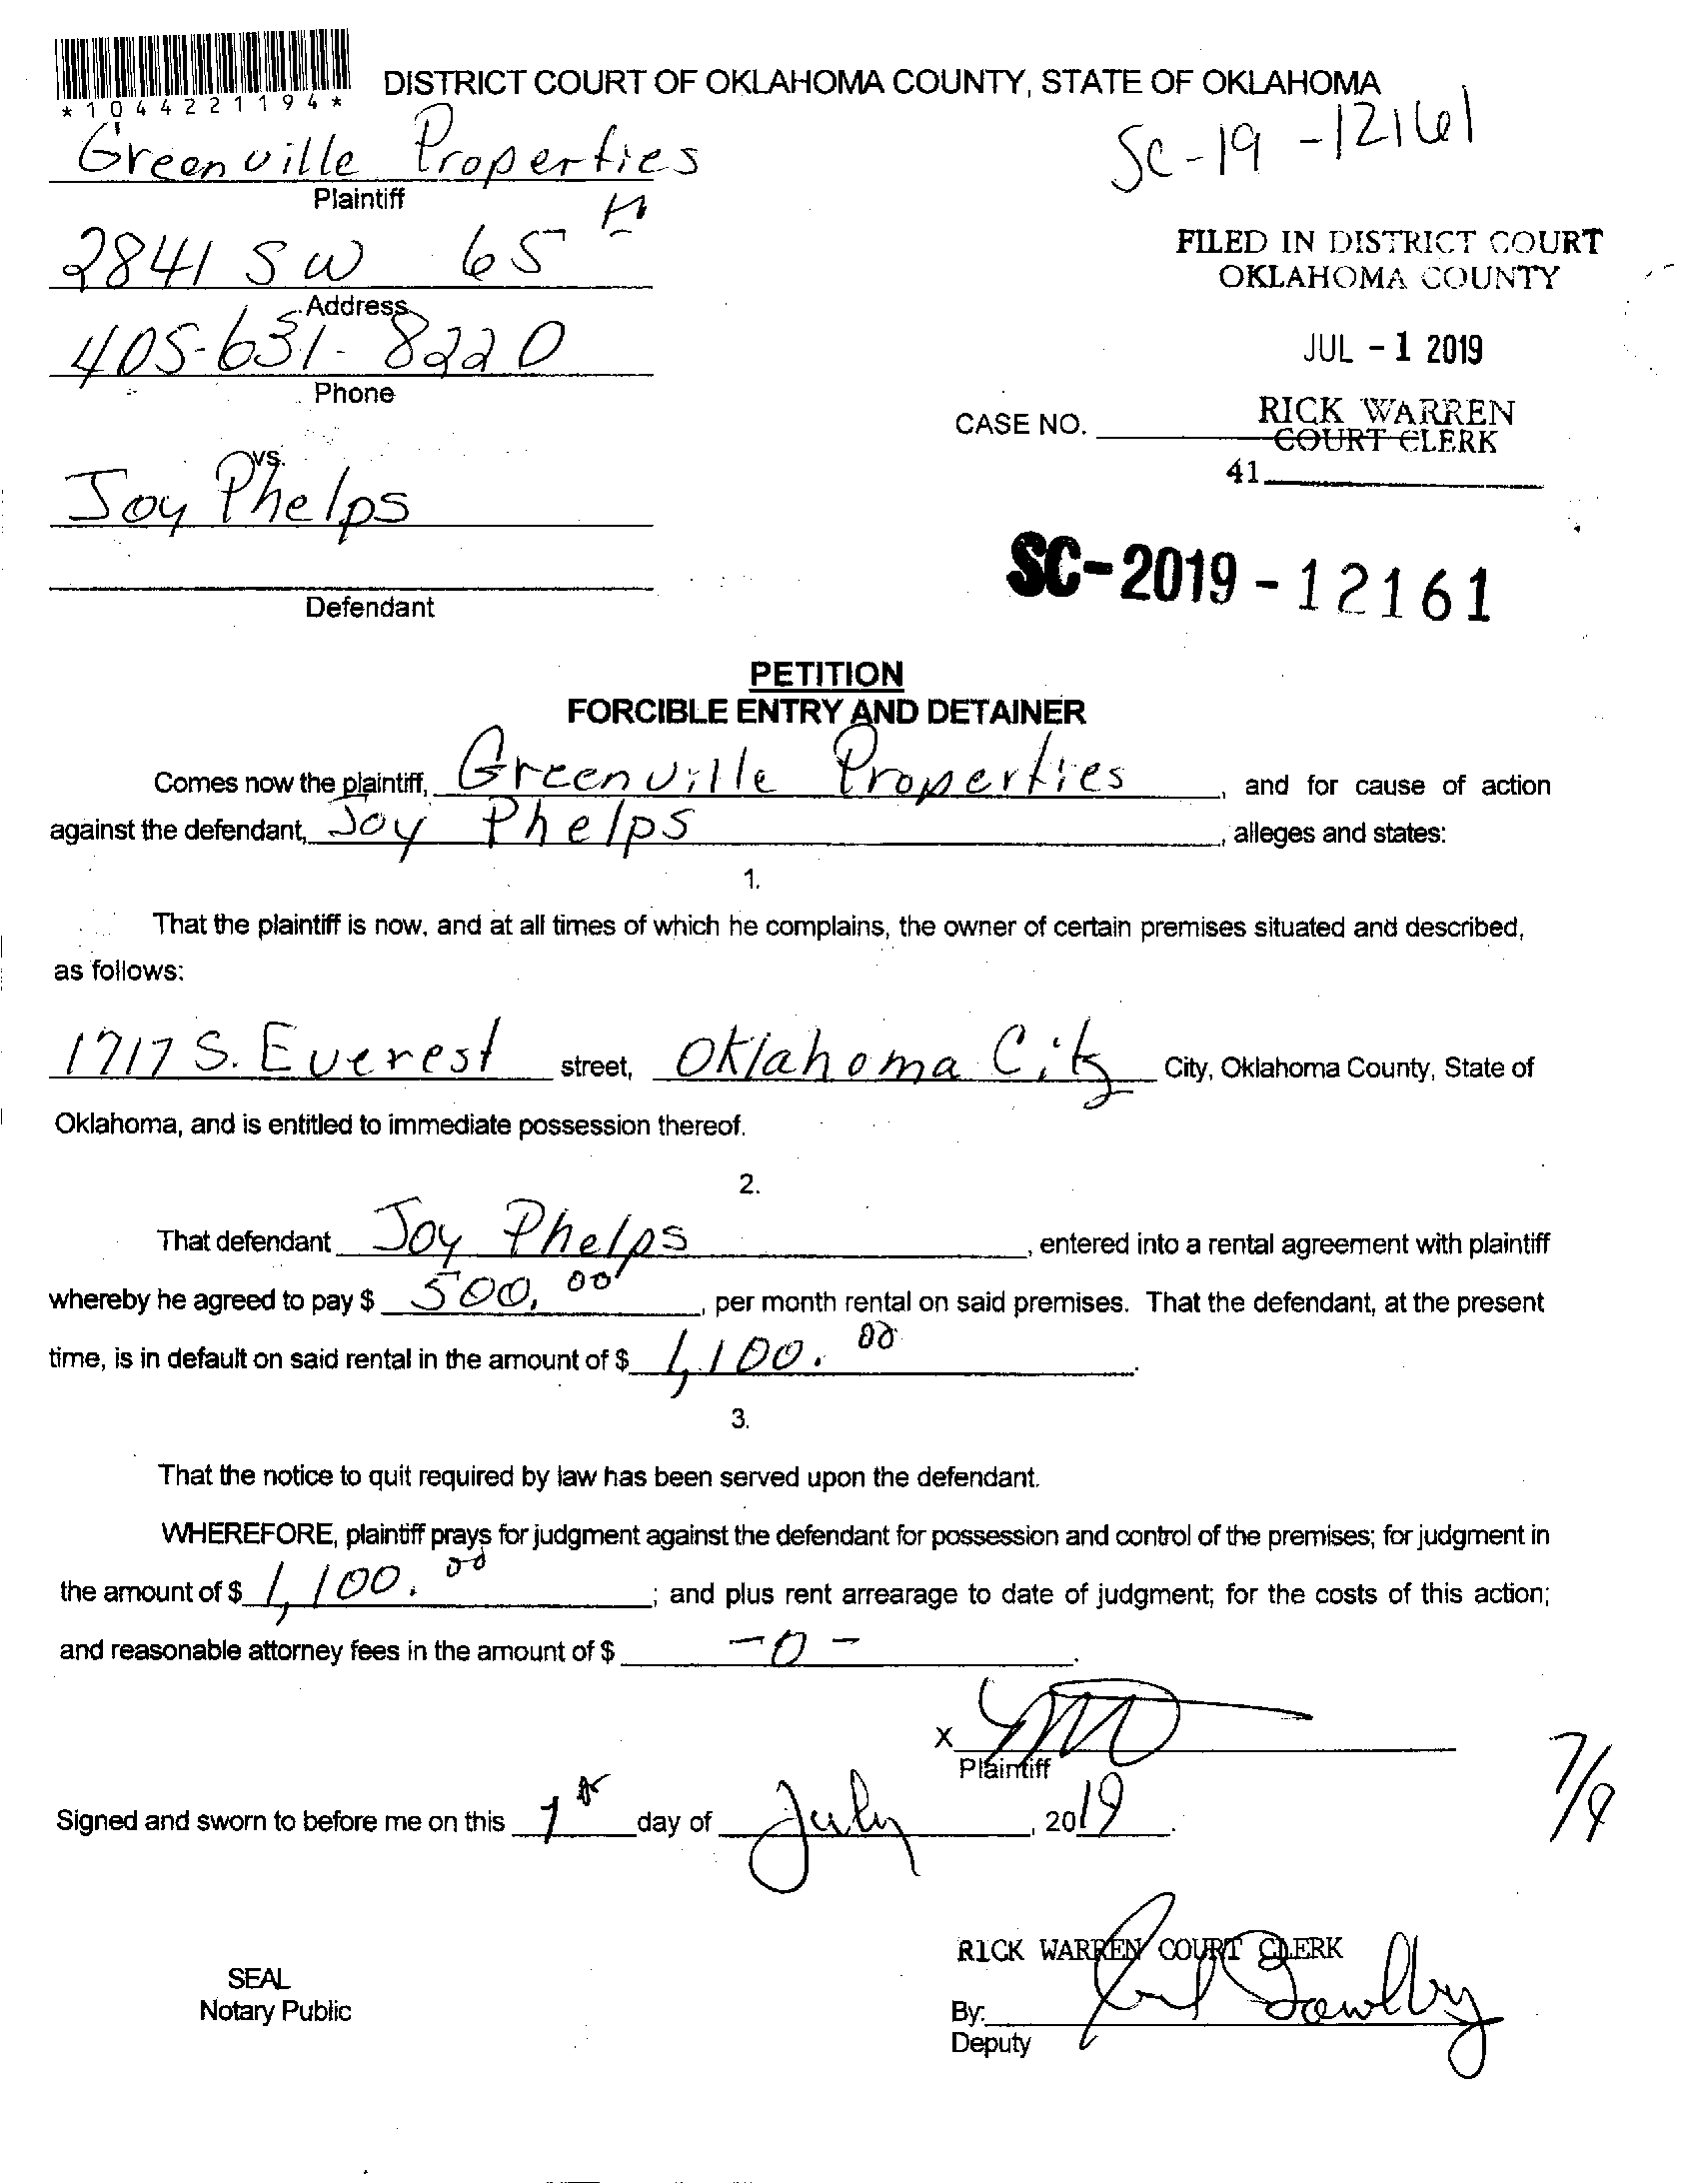 *1044221194*
DISTRICT COURT OF OKLAHOMA COUNTY, STATE OF OKLAHOMA
SC-19-12161
Greenville Properties
Plaintiff
2841 SW 65th
Address
405-631-8220
Phone
FILED IN DISTRICT COURT
OKLAHOMA COUNTY
JUL - 1 2019
RICK WARREN
COURT CLERK
CASE NO.
41
vs.
Joy Phelps
Defendant
SC-2019-12161
PETITION
FORCIBLE ENTRY AND DETAINER
Comes now the plaintiff, Greenville Properties, and for cause of action
against the defendant, Joy Phelps, alleges and states:
1.
That the plaintiff is now, and at all times of which he complains, the owner of certain premises situated and described,
as follows:
1717 S. Everest street, Oklahoma City City, Oklahoma County, State of
Oklahoma, and is entitled to immediate possession thereof.
2.
That defendant Joy Phelps, entered into a rental agreement with plaintiff
whereby he agreed to pay $ 500.00, per month rental on said premises. That the defendant, at the present
time, is in default on said rental in the amount of $ 1,100.00.
3.
That the notice to quit required by law has been served upon the defendant.
WHEREFORE, plaintiff prays for judgment against the defendant for possession and control of the premises; for judgment in
the amount of $ 1,100.00; and plus rent arrearage to date of judgment; for the costs of this action;
and reasonable attorney fees in the amount of $ -0-.
X
Plaintiff
7/9
Signed and sworn to before me on this 1st day of July, 2019.
RICK WARREN COURT CLERK
SEAL
Notary Public
By:
Deputy